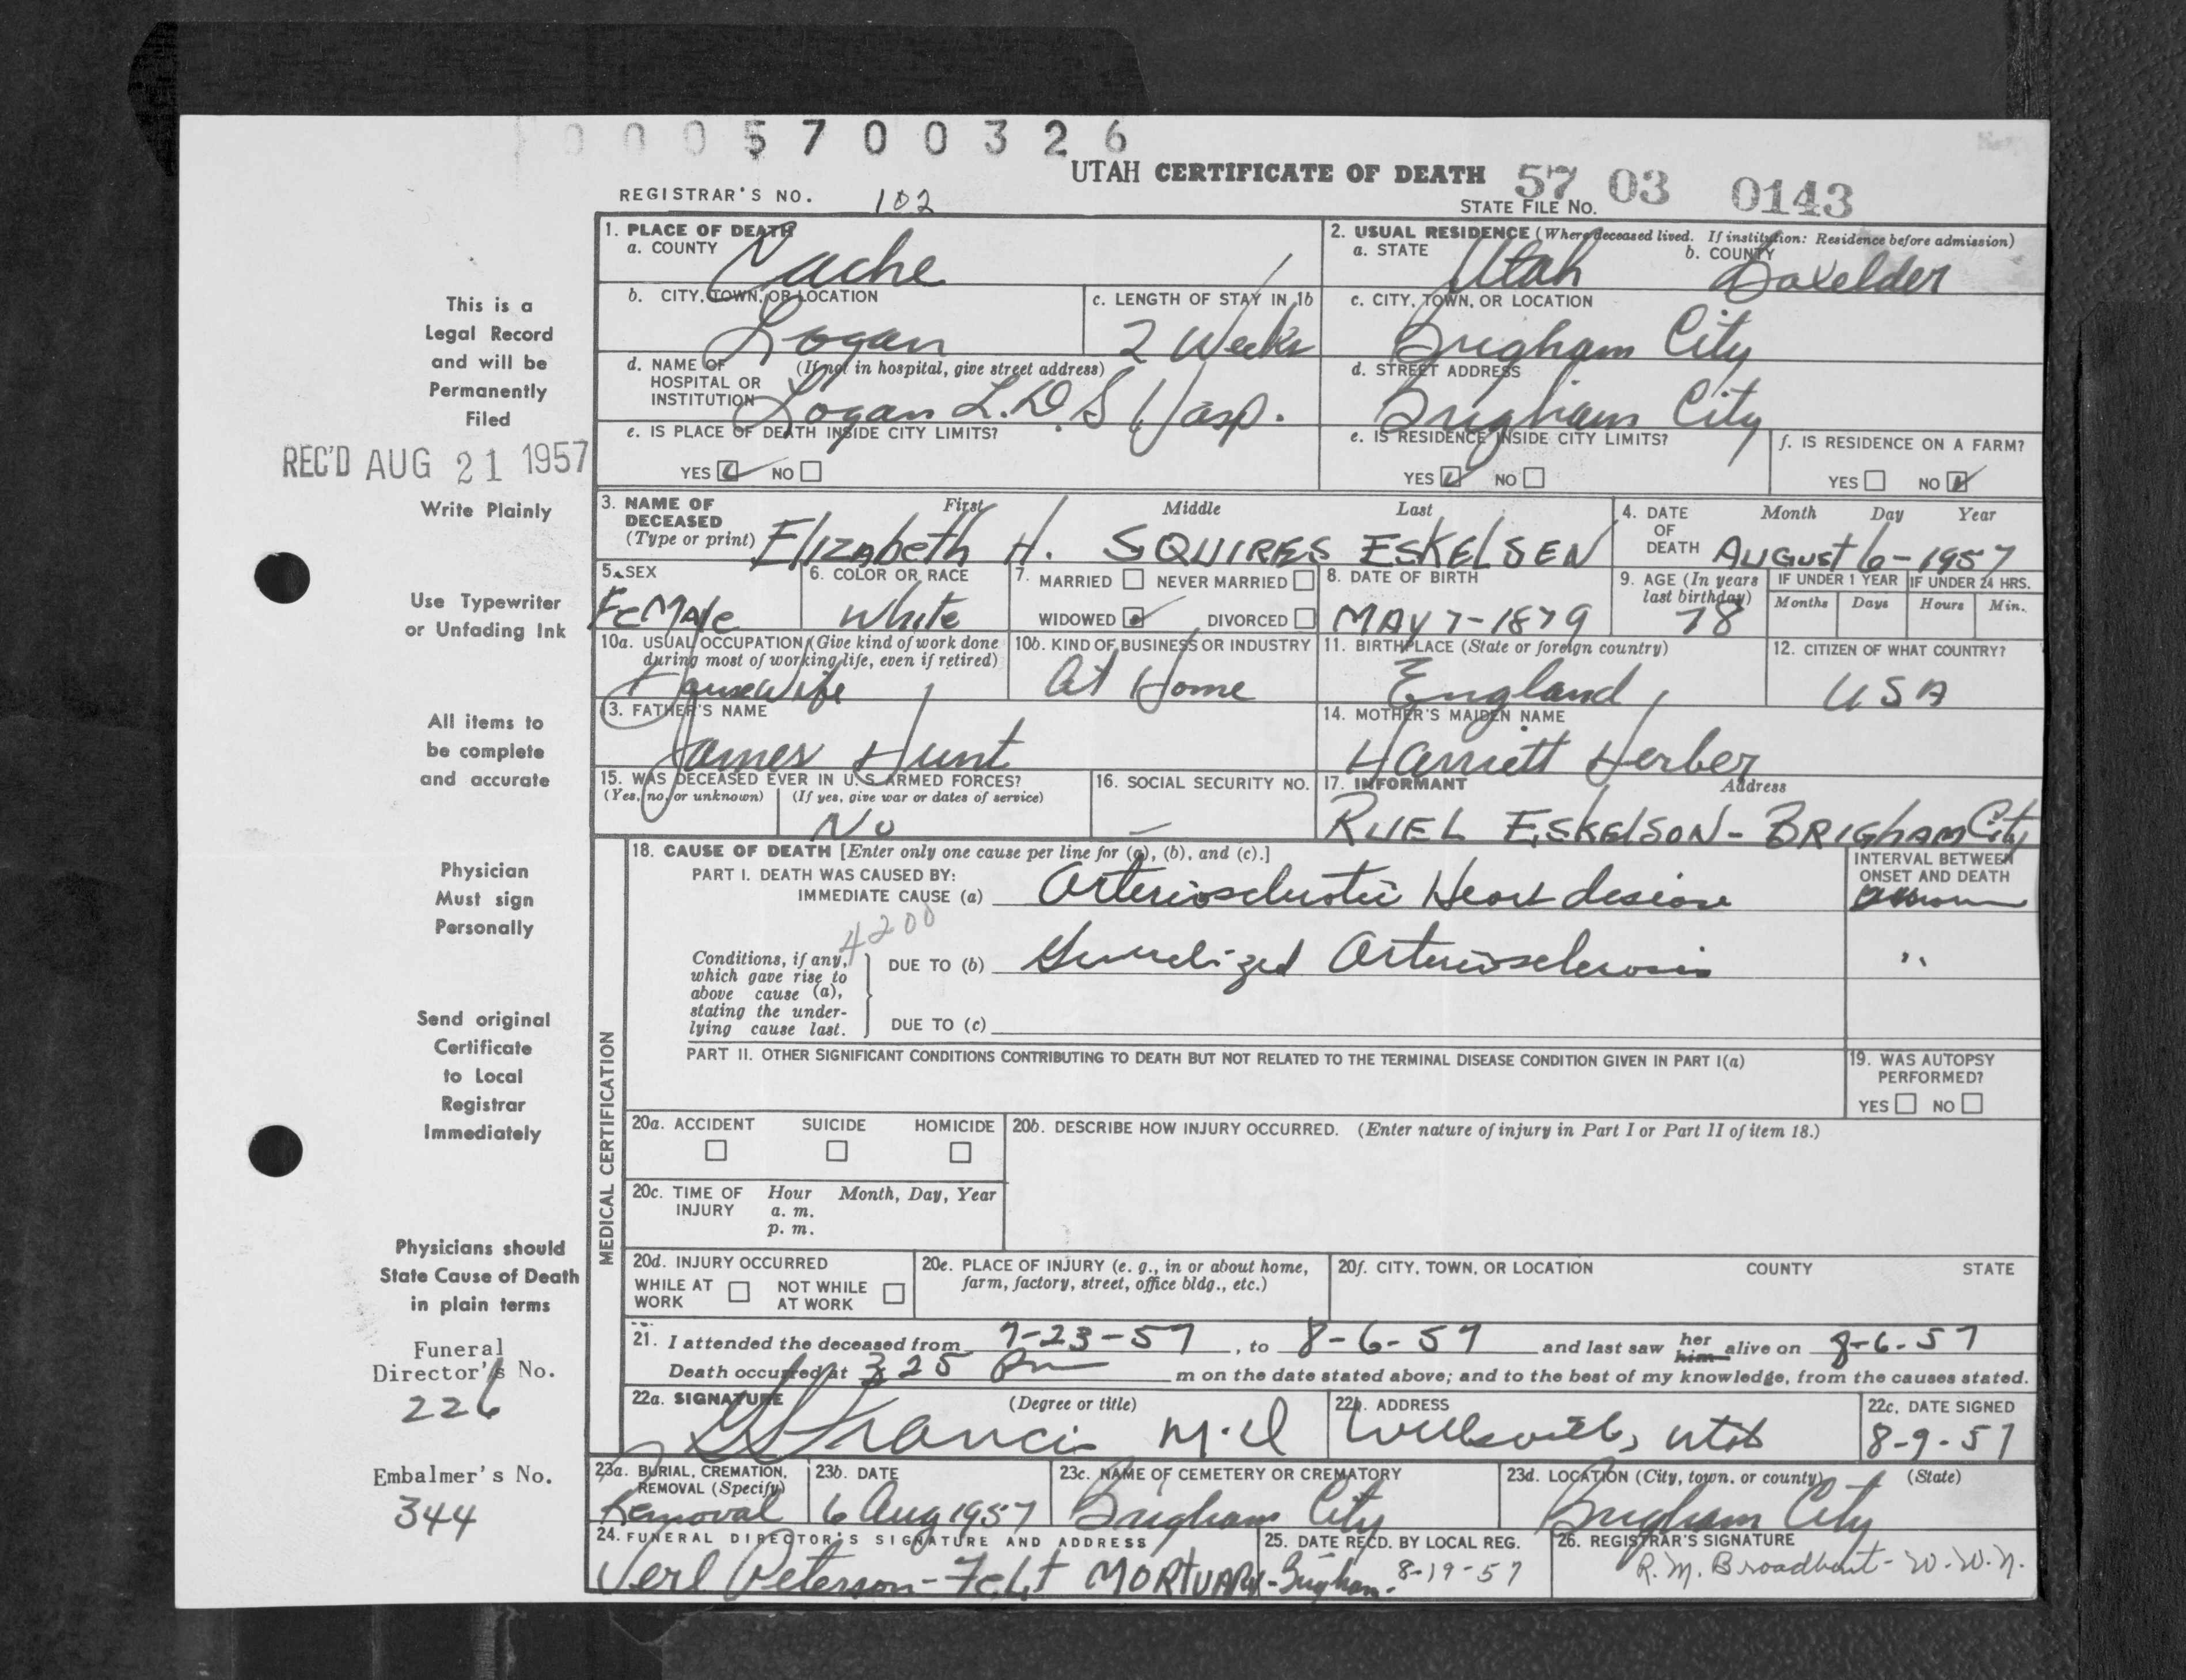 0005700326
UTAH CERTIFICATE OF DEATH 57 03 0143
REGISTRAR'S NO. 102
STATE FILE NO.
1. PLACE OF DEATH
a. COUNTY Cache
2. USUAL RESIDENCE (Where deceased lived. If institution: Residence before admission)
a. STATE Utah b. COUNTY Boxelder
b. CITY, TOWN, OR LOCATION Logan
c. LENGTH OF STAY IN 1b 2 Weeks
c. CITY, TOWN, OR LOCATION Brigham City
d. NAME OF HOSPITAL OR INSTITUTION (If not in hospital, give street address) Logan L.D.S Hosp.
d. STREET ADDRESS Brigham City
e. IS PLACE OF DEATH INSIDE CITY LIMITS?
YES NO
e. IS RESIDENCE INSIDE CITY LIMITS?
YES NO
f. IS RESIDENCE ON A FARM?
YES NO
3. NAME OF DECEASED (Type or print) First Middle Last
Elizabeth H. SQUIRES ESKELSEN
4. DATE OF DEATH Month Day Year
AUGUST 6-1957
5. SEX FeMale
6. COLOR OR RACE White
7. MARRIED NEVER MARRIED
WIDOWED DIVORCED
8. DATE OF BIRTH MAY 7-1879
9. AGE (In years last birthday) 78
IF UNDER 1 YEAR Months Days
IF UNDER 24 HRS. Hours Min.
10a. USUAL OCCUPATION (Give kind of work done during most of working life, even if retired) Housewife
10b. KIND OF BUSINESS OR INDUSTRY At Home
11. BIRTHPLACE (State or foreign country) England
12. CITIZEN OF WHAT COUNTRY? USA
13. FATHER'S NAME James Hunt
14. MOTHER'S MAIDEN NAME Harriett Herber
15. WAS DECEASED EVER IN U.S. ARMED FORCES?
(Yes, no, or unknown) (If yes, give war or dates of service)
No
16. SOCIAL SECURITY NO. —
17. INFORMANT Address
RUEL ESKELSON - BRIGHAM City
MEDICAL CERTIFICATION
18. CAUSE OF DEATH [Enter only one cause per line for (a), (b), and (c).]
INTERVAL BETWEEN ONSET AND DEATH
PART I. DEATH WAS CAUSED BY:
IMMEDIATE CAUSE (a) Arteriosclerotic Heart disease
4200
Conditions, if any, which gave rise to above cause (a), stating the underlying cause last.
DUE TO (b) Generalized Arteriosclerosis "
DUE TO (c)
PART II. OTHER SIGNIFICANT CONDITIONS CONTRIBUTING TO DEATH BUT NOT RELATED TO THE TERMINAL DISEASE CONDITION GIVEN IN PART I(a)
19. WAS AUTOPSY PERFORMED?
YES NO
20a. ACCIDENT SUICIDE HOMICIDE
20b. DESCRIBE HOW INJURY OCCURRED. (Enter nature of injury in Part I or Part II of item 18.)
20c. TIME OF INJURY Hour Month, Day, Year
a. m.
p. m.
20d. INJURY OCCURRED
WHILE AT WORK NOT WHILE AT WORK
20e. PLACE OF INJURY (e. g., in or about home, farm, factory, street, office bldg., etc.)
20f. CITY, TOWN, OR LOCATION COUNTY STATE
21. I attended the deceased from 7-23-57, to 8-6-57 and last saw her him alive on 8-6-57
Death occurred at 3 25 Pm m on the date stated above; and to the best of my knowledge, from the causes stated.
22a. SIGNATURE (Degree or title)
Francis M.D
22b. ADDRESS Wellsville, Utah
22c. DATE SIGNED 8-9-57
23a. BURIAL, CREMATION, REMOVAL (Specify) Removal
23b. DATE 6 Aug 1957
23c. NAME OF CEMETERY OR CREMATORY Brigham City
23d. LOCATION (City, town, or county) (State)
Brigham City
24. FUNERAL DIRECTOR'S SIGNATURE AND ADDRESS
Verl Peterson - Felt MORTUARY - Brigham.
25. DATE RECD. BY LOCAL REG. 8-19-57
26. REGISTRAR'S SIGNATURE
R.M. Broadbent - W.W.N.
This is a
Legal Record
and will be
Permanently
Filed
REC'D AUG 21 1957
Write Plainly
Use Typewriter
or Unfading Ink
All items to
be complete
and accurate
Physician
Must sign
Personally
Send original
Certificate
to Local
Registrar
Immediately
Physicians should
State Cause of Death
in plain terms
Funeral
Director's No.
226
Embalmer's No.
344